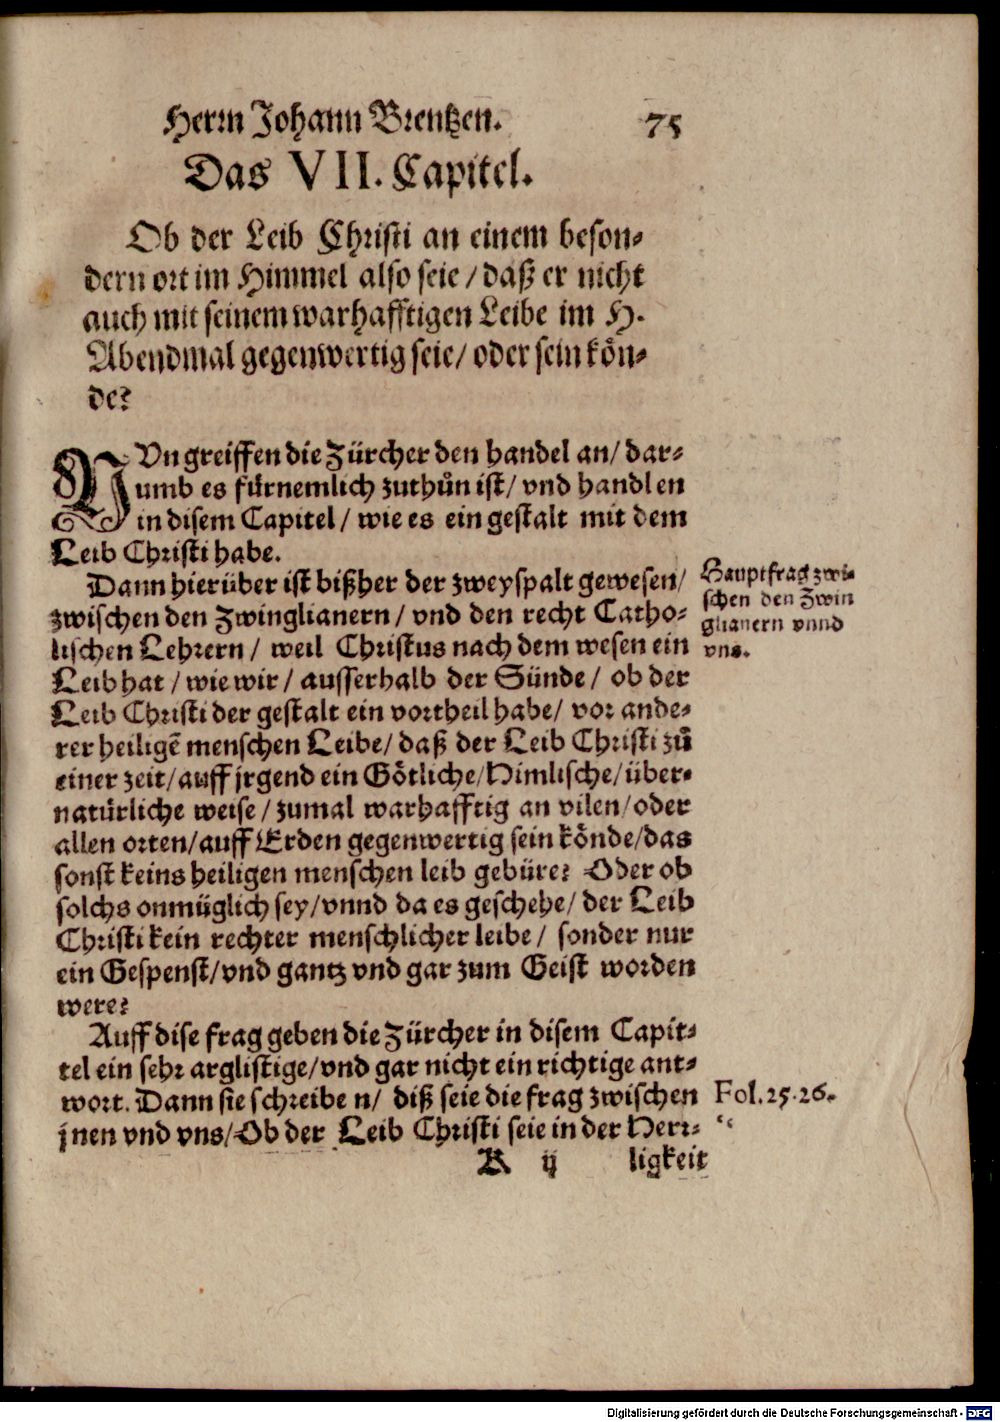 Herrn Johann Brentzen. 75
Das VII. Capitel.
Ob der Leib Christi an einem beson⸗
dern ort im Himmel also seie / daß er nicht
auch mit seinem warhafftigen Leibe im H.
Abendmal gegenwertig seie / oder sein kön⸗
de?
NVn greiffen die Zürcher den handel an / dar⸗
umb es fürnemlich zuthůn ist / vnd handlen
in disem Capitel / wie es ein gestalt mit dem
Leib Christi habe.
Dann hierüber ist bißher der zweyspalt gewesen /
zwischen den Zwinglianern / vnd den recht Catho⸗
lischen Lehrern / weil Christus nach dem wesen ein
Leib hat / wie wir / ausserhalb der Sünde / ob der
Leib Christi der gestalt ein vortheil habe / vor ande⸗
rer heiligẽ menschen Leibe / daß der Leib Christi zů
einer zeit / auff jrgend ein Götliche / Himlische / über⸗
natürliche weise / zumal warhafftig an vilen / oder
allen orten / auff Erden gegenwertig sein könde / das
sonst keins heiligen menschen leib gebüre? Oder ob
solchs onmüglich sey / vnnd da es geschehe / der Leib
Christi kein rechter menschlicher leibe / sonder nur
ein Gespenst / vnd gantz vnd gar zum Geist worden
were?
Hauptfrag zwi⸗
schen den Zwin
glianern vnnd
vns.
Auff dise frag geben die Zürcher in disem Capit⸗
tel ein sehr arglistige / vnd gar nicht ein richtige ant⸗
wort. Dann sie schreiben / diß seie die frag zwischen
jnen vnd vns / Ob der Leib Christi seie in der Herr⸗
Fol. 25. 26.
“
K ij ligkeit
Digitalisierung gefördert durch die Deutsche Forschungsgemeinschaft - DFG